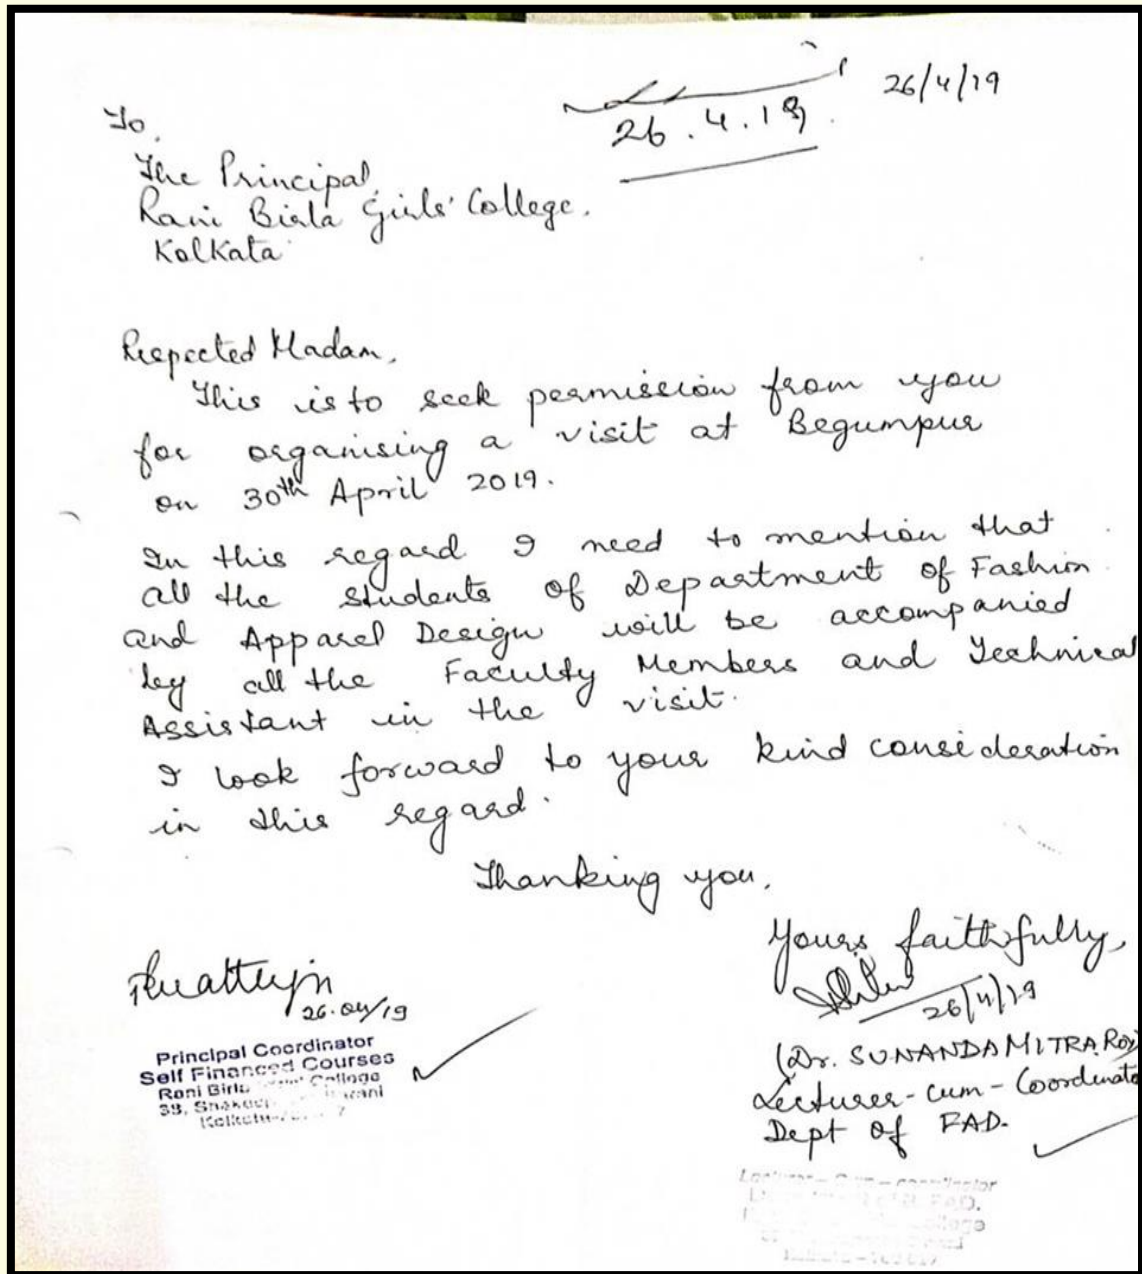 26/4/19
26.4.19
To,
The Principal
Rani Birla Girls' College.
Kolkata
Respected Madam,
This is to seek permission from you
for organising a visit at Begumpur
on 30th April 2019.
In this regard I need to mention that
all the students of Department of Fashion
and Apparel Design will be accompanied
by all the Faculty Members and Technical
Assistant in the visit.
I look forward to your kind consideration
in this regard.
Thanking you,
Yours faithfully,
26/4/19
(Dr. SUNANDA MITRA ROY)
Lecturer-cum-Coordinator
Dept of FAD.
26.04/19
Principal Coordinator
Self Financed Courses
Rani Birla College